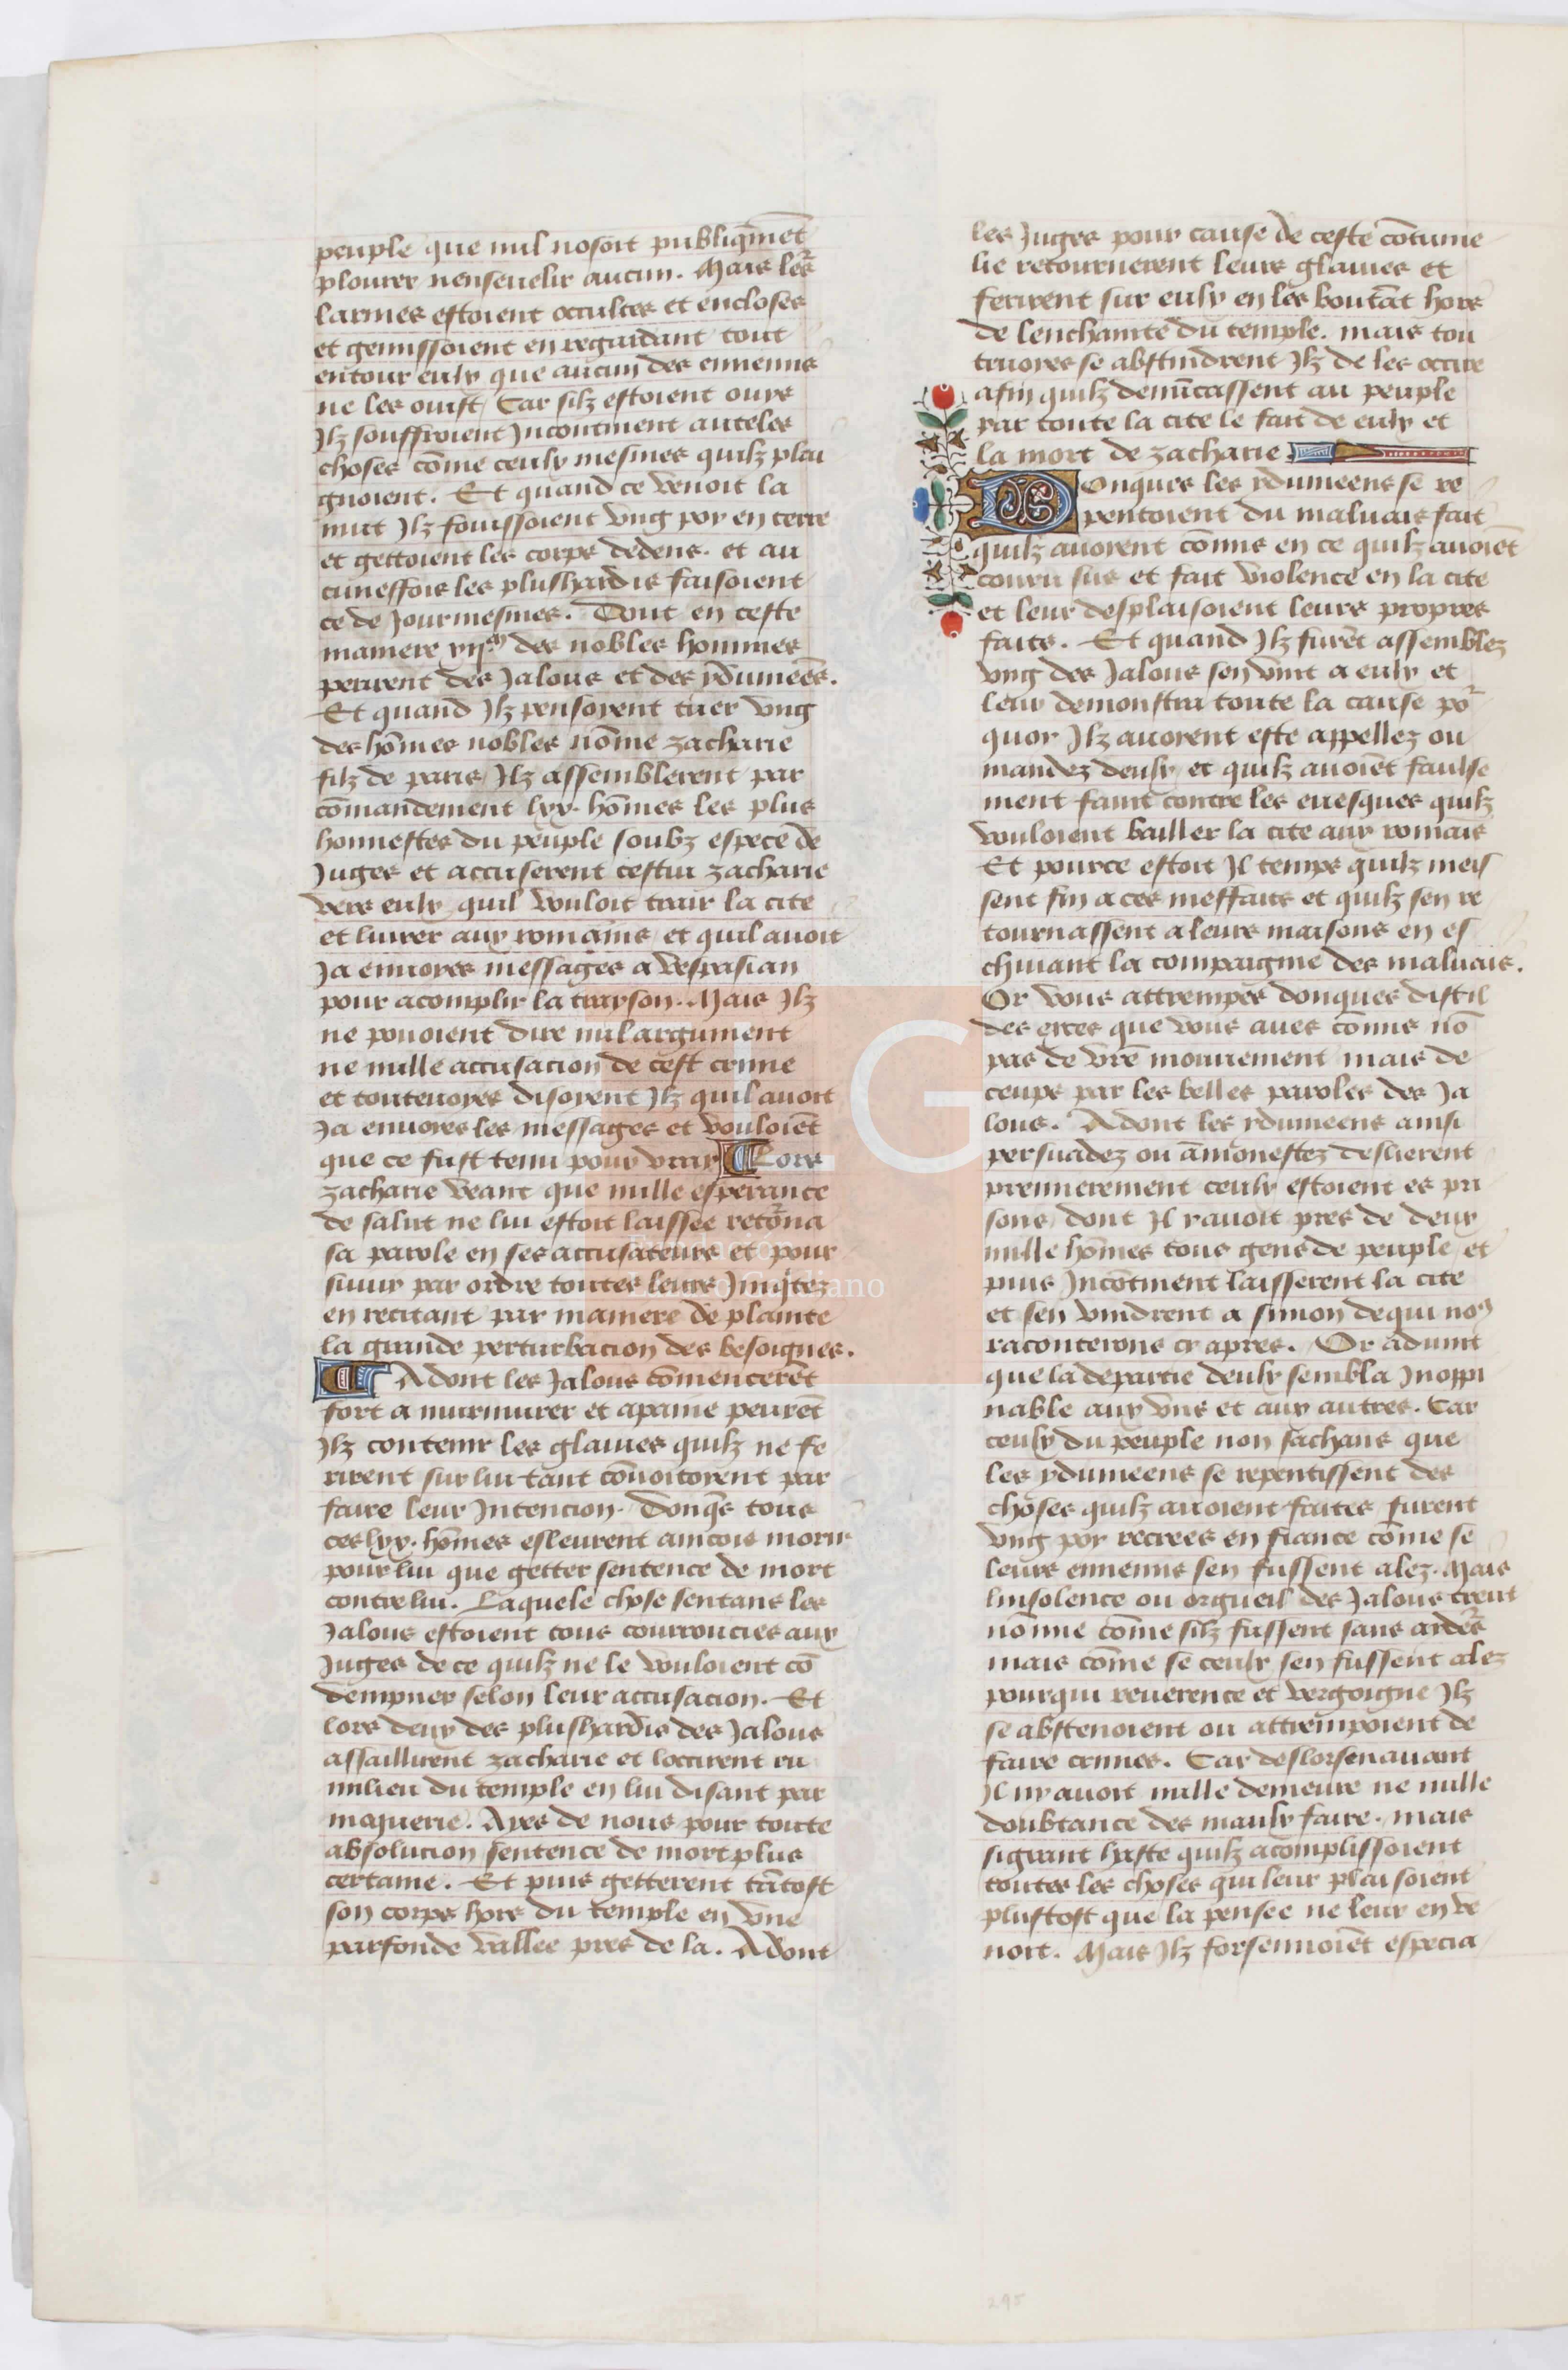 peuple que nul nosoit publiqmēt
plourer nenseuelir aucun. Mais les
larmes estoient occultes et encloses
et gemissoient en regardant tout
entour eulx que aucun des ennemis
ne les ouist, Car silz estoient ouys
Ilz souffroient Incontinent auteles
choses cōme ceulx mesmes quilz plai
gnoient. Et quand ce venoit la
nuit Ilz fouissoient vng poy en terre
et gettoient les corps dedens. et au
cuneffois les plushardis faisoient
ce de Jour mesmes. Tout en ceste
maniere xijm des nobles hommes
perirent des Jalous et des ydumeēs.
Et quand Ilz pensoyent tuer vng
des hōmes nobles nōme zacharie
filz de paris, Ilz assemblerent par
cōmandement lxx. hōmes les plus
honnestes du peuple soubz espece de
Juges et accuserent cestui zacharie
vers eulx quil vouloit trair la cite
et liurer aux romains et quil auoit
Ja enuoyes messages a vespasian
pour acomplir la trayson. Mais Ilz
ne pouoient dire nul argument
ne nulle accusacion de cest crime
et toutenoyes disoyent Ilz quil auoit
Ja enuoyes les messages et vouloiēt
que ce fust tenu pour vray Lors
zacharie veant que nulle esperance
de salut ne lui estoit laissee retōna
sa parole en ses accusateurs et pour
suiuir par ordre toutes leurs Iniqtez
en recitant par maniere de plainte
la grande perturbacion des besoignes.
Adont les Jalous cōmencerēt
fort a murmurer et apaine peurēt
Ilz contenir les glaiues quilz ne fe
rirent sur lui tant cōuoitoyent par
faire leur Intencion. Donqs tous
ces lxx. hōmes esleurent aincois morir
pour lui que getter sentence de mort
contre lui. Laquele chose sentans les
Jalous estoient tous courroucies aux
Juges de ce quilz ne le vouloient cō
dempner selon leur accusacion. Et
lors deux des plushardis des Jalous
assaillirent zacharie et loccirent eu
milieu du temple en lui disant par
moquerie. Ayes de nous pour toute
absolucion sentence de mort plus
certaine. Et puis getterent tātost
son corps hors du temple en vne
parfonde vallee pres de la. Adont
les Juges pour cause de ceste cōtume
lie retournerent leurs glaiues et
ferirent sur eulx en les boutāt hors
de lenchainte du temple. mais tou
teuoyes se abstindrent Ilz de les occire
afin quilz denūcassent au peuple
par toute la cite le fait de eulx et
la mort de zacharie.
Donques les ydumeens se re
pentoient du maluais fait
quilz auoyent cōmis en ce quilz auoiēt
couru sus et fait violence en la cite
et leur desplaisoient leurs propres
fais. Et quand Ilz furēt assemblez
vng des Jalous sen vint a eulx et
leur demonstra toute la cause po
quoy Ilz auoyent este appellez ou
mandez deulx et quilz auoiēt faulse
ment faint contre les euesques quilz
vouloient bailler la cite aux romais
Et pource estoit Il temps quilz meis
sent fin a ces meffaits et quilz sen re
tournassent a leurs maisons en es
chiuant la compaignie des maluais.
Or vous attrempes donques distil
des exces que vous aues cōmis nō
pas de vrē mouuement mais de
ceups par les belles paroles des Ja
lous. Adont les ydumeens ainsi
persuadez ou āmonestez deslierent
premierement ceulx estoient es pri
sons dont Il y auoit pres de deux
mille hōmes tous gens de peuple et
puis Incōtinent laisserent la cite
et sen vindrent a simon de qui nos
raconterons cy apres. Or aduint
que la departie deulx sembla Inoppi
nable aux vns et aux autres. Car
ceulx du peuple non sachans que
les ydumeens se repentissent des
choses quilz auoient faites furent
vng poy recrees en fiance cōme se
leurs ennemis sen fussent alez. Mais
linsolence ou orgueil des Jalous creut
nōmie cōme silz fussent sans arders
mais cōme se ceulx sen fussent alez
pourqui reuerence et vergoigne Ilz
se abstenoient ou attrempoient de
faire crimes. Car deslorsenauant
Il ny auoit nulle demeure ne nulle
doubtance des maulx faire. mais
sigrant haste quilz acomplissoient
toutes les choses qui leur plaisoient
plustost que la pensee ne leur en ve
noit. Mais Ilz forsennoiēt especia